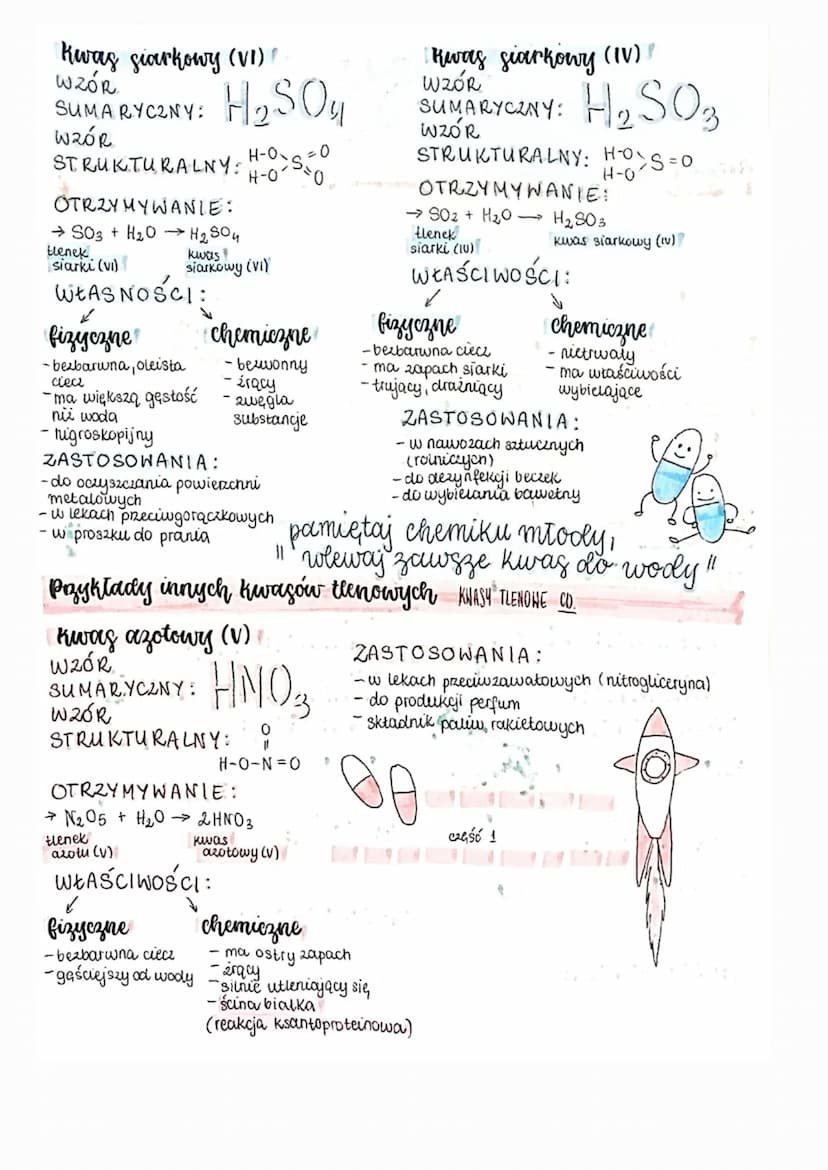 Kwas siarkowy (VI)
WZÓR
SUMARYCZNY: H₂SO₄
WZÓR
STRUKTURALNY: H-O S=O
H-O O
OTRZYMYWANIE:
→ SO₃ + H₂O → H₂SO₄
tlenek siarki (VI) kwas siarkowy (VI)
WŁASNOŚCI:
fizyczne chemiczne
- bezbarwna, oleista
ciecz
- ma większą gęstość
niż woda
- higroskopijny
- bezwonny
- żrący
- zwęgla
substancje
ZASTOSOWANIA:
- do oczyszczania powierzchni
metalowych
- w lekach przeciwgorączkowych
- w proszku do prania
Kwas siarkowy (IV)
WZÓR
SUMARYCZNY: H₂SO₃
WZÓR
STRUKTURALNY: H-O S=O
H-O
OTRZYMYWANIE:
→ SO₂ + H₂O → H₂SO₃
tlenek siarki (IV) kwas siarkowy (IV)
WŁAŚCIWOŚCI:
fizyczne chemiczne
- bezbarwna ciecz
- ma zapach siarki
- trujący, drażniący
- nietrwały
- ma właściwości
wybielające
ZASTOSOWANIA:
- w nawozach sztucznych
(rolniczych)
- do dezynfekcji beczek
- do wybielania bawełny
pamiętaj chemiku młody,
" wlewaj zawsze kwas do wody "
Przykłady innych kwasów tlenowych KWASY TLENOWE CD.
Kwas azotowy (V)
WZÓR
SUMARYCZNY: HNO₃
WZÓR
STRUKTURALNY: O
॥
H-O-N=O
OTRZYMYWANIE:
→ N₂O₅ + H₂O → 2HNO₃
tlenek azotu (V) kwas azotowy (V)
WŁAŚCIWOŚCI:
fizyczne chemiczne
- bezbarwna ciecz
- gęściejszy od wody
- ma ostry zapach
- żrący
- silnie utleniający się
- ścina białka
(reakcja ksantoproteinowa)
ZASTOSOWANIA:
- w lekach przeciwzawałowych (nitrogliceryna)
- do produkcji perfum
- składnik paliw rakietowych
część 1